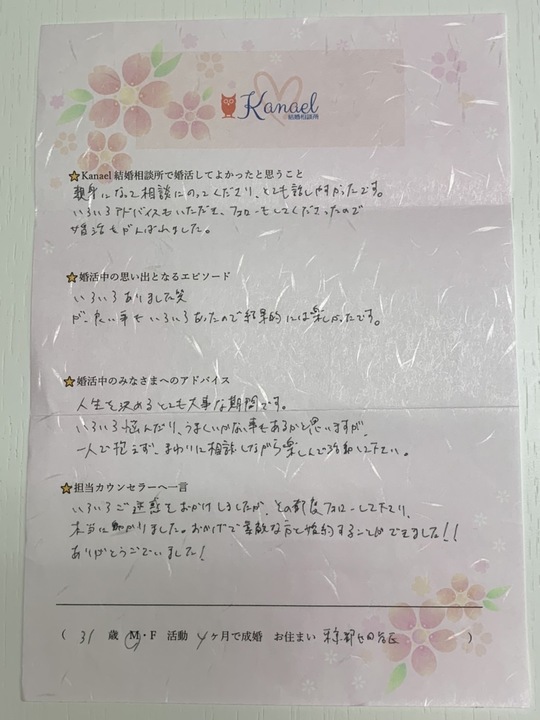 Kanael
結婚相談所
Kanael 結婚相談所で婚活してよかったと思うこと
親身になって相談にのってくださり、とても話しやすかったです。
いろいろアドバイスもいただき、フォローもしてくださったので
婚活をがんばれました。
婚活中の思い出となるエピソード
いろいろありました笑
が、良い事もいろいろあったので結果的には楽しかったです。
婚活中のみなさまへのアドバイス
人生を決めるとても大事な期間です。
いろいろ悩んだり、うまくいかない事もあるかと思いますが、
一人で抱えず、まわりに相談しながら楽しんで活動して下さい。
担当カウンセラーへ一言
いろいろご迷惑をおかけしましたが、その都度フォローして下さり、
本当に助かりました。おかげで素敵な方と婚約することができました!!
ありがとうございました!
( 31 歳 M・F 活動 4ヶ月で成婚 お住まい 東京都世田谷区 )